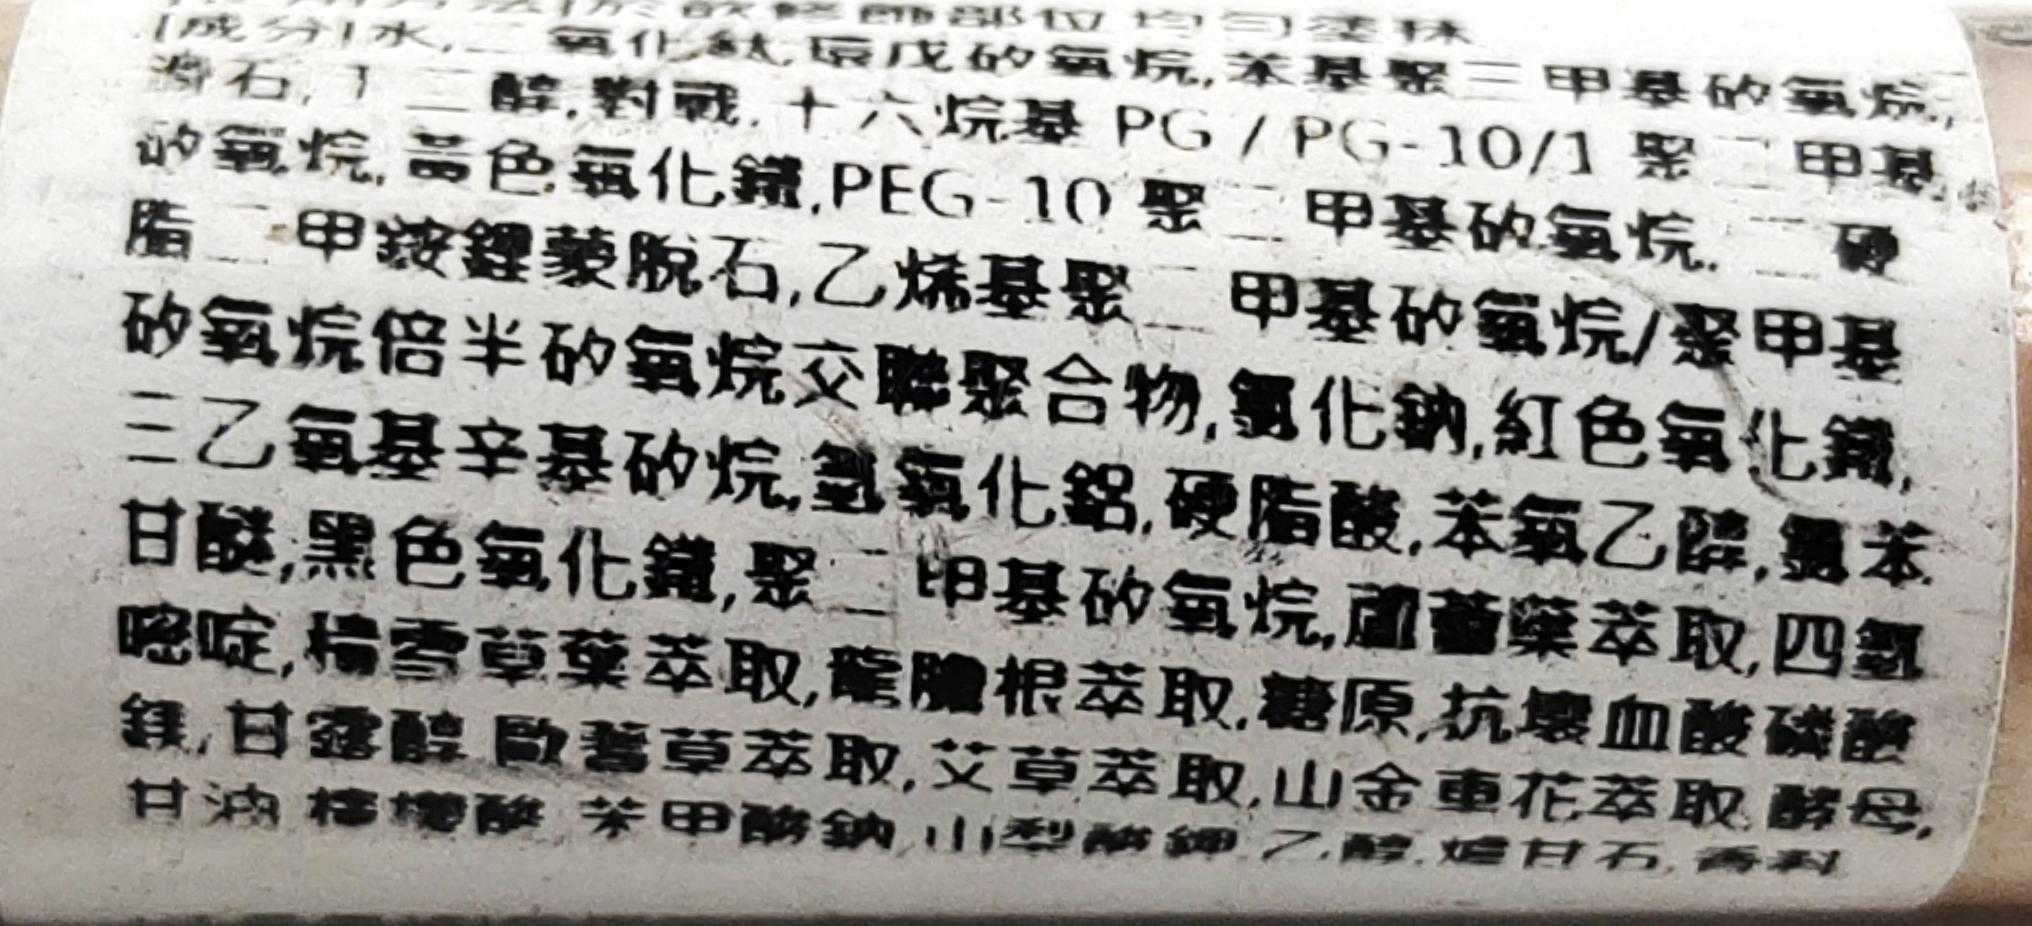 於欲修飾部位均勻塗抹
[成分]水,二氧化鈦,環戊矽氧烷,苯基聚三甲基矽氧烷,
滑石,丁二醇,對戰,十六烷基 PG / PG-10/1 聚二甲基
矽氧烷,黃色氧化鐵,PEG-10 聚二甲基矽氧烷,二硬
脂二甲銨鋰蒙脫石,乙烯基聚二甲基矽氧烷/聚甲基
矽氧烷倍半矽氧烷交聯聚合物,氯化鈉,紅色氧化鐵,
三乙氧基辛基矽烷,氫氧化鋁,硬脂酸,苯氧乙醇,氯苯
甘醚,黑色氧化鐵,聚二甲基矽氧烷,蘆薈葉萃取,四氫
嘧啶,積雪草葉萃取,龍膽根萃取,糖原,抗壞血酸磷酸
鎂,甘露醇,歐蓍草萃取,艾草萃取,山金車花萃取,酵母,
甘油,檸檬酸,苯甲酸鈉,山梨酸鉀,乙醇,爐甘石,香料